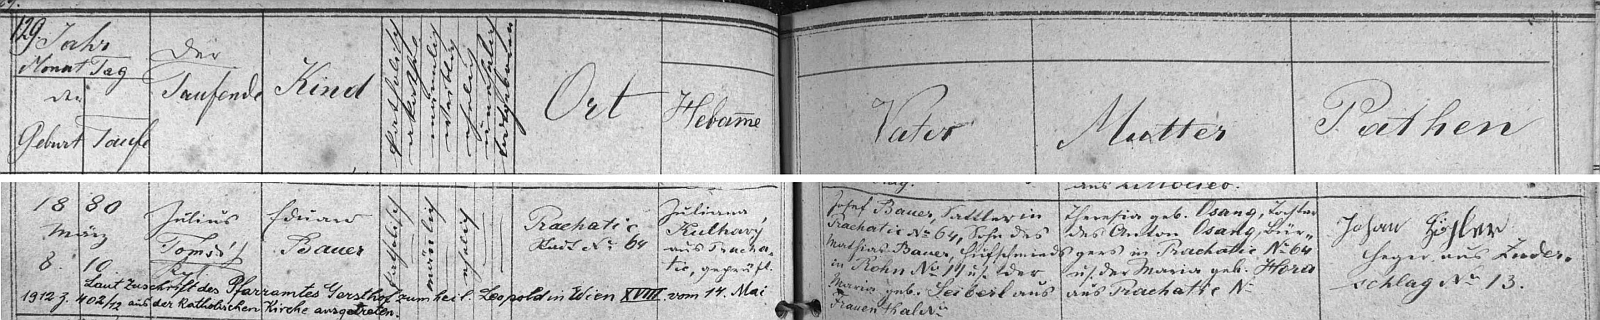 129.
Jahr
Monat Tag
der
Geburt Taufe
Der
Taufende
Kind
katholisch
männlich
weiblich
ehelich
unehelich
Ort
Hebame
Vater
Mutter
Pathen
18 80
März
8. 10
Julius
Eduard
Bauer
katholisch
männlich
ehelich
Prachatic
Stadt No 64
Juliana
Kulhavý
aus Pracha-
tic, geprüft.
Laut Zuschrift des Pfarramtes Gersthof zum heil. Leopold in Wien XVIII. vom 14. Mai
1912 Z. 402/12 aus der Katholischen Kirche ausgetreten.
Josef Bauer, Sattler in
Prachatic No 64, Sohn des
Mathias Bauer, Hufschmieds
in Rohn No 14 u. der
Maria geb. Seiberl aus
Frauenthal No
Theresia geb. Osang, Tochter
des Anton Osang, Bür-
gers in Prachatic No 64
u. der Maria geb. Hora
aus Prachatic No
Johan
Heger aus
schlag No 13.